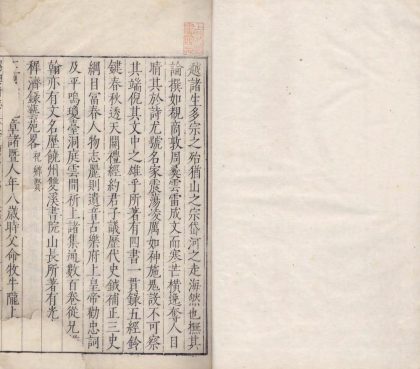 越諸生多宗之殆猶山之宗岱河之走海然也撫其
論撰如覩商敦周彝雲雷成文而寒芒橫逸奪人目
睛其於詩尤號名家震蕩凌厲如神施鬼設不可察
其端倪其文中之雄乎所著有四書一貫錄五經鈐
鍵春秋透天關禮經約君子議歷代史鉞補正三史
綱目富春人物志麗則遺音古樂府上皇帝勸忠詞
及平鳴瓊臺洞庭雲間祈上諸集通數百卷從兄
翰亦有文名歷饒州雙溪書院山長所著有光
稗濟錄藝苑畧 祀鄉賢
章諸暨人年八歲時父命牧牛隴上